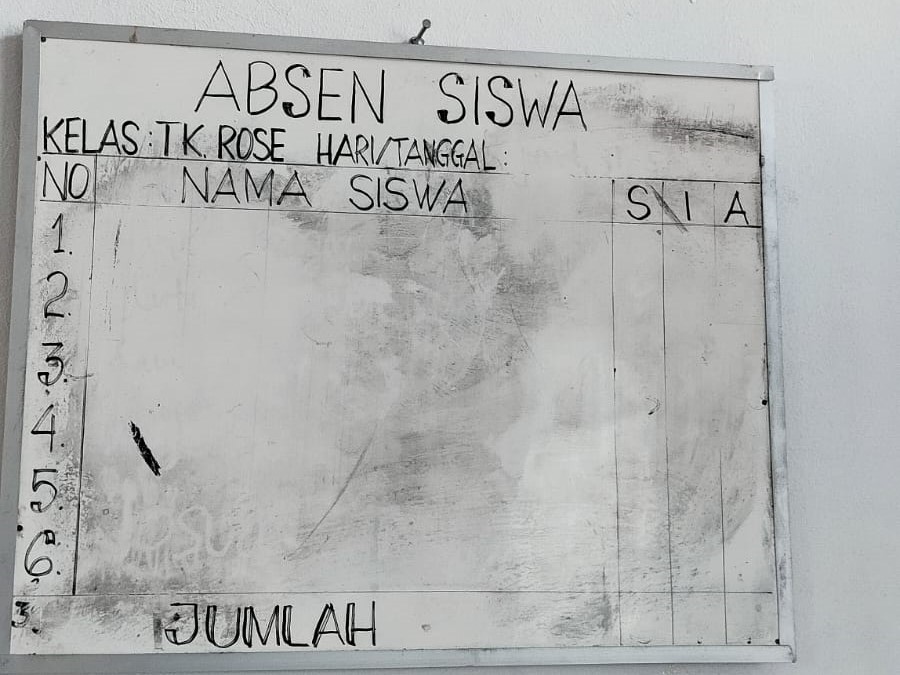 ABSEN SISWA
KELAS : TK. ROSE HARI/TANGGAL :
NO NAMA SISWA S I A
1.
2.
3.
4.
5.
6.
3. JUMLAH